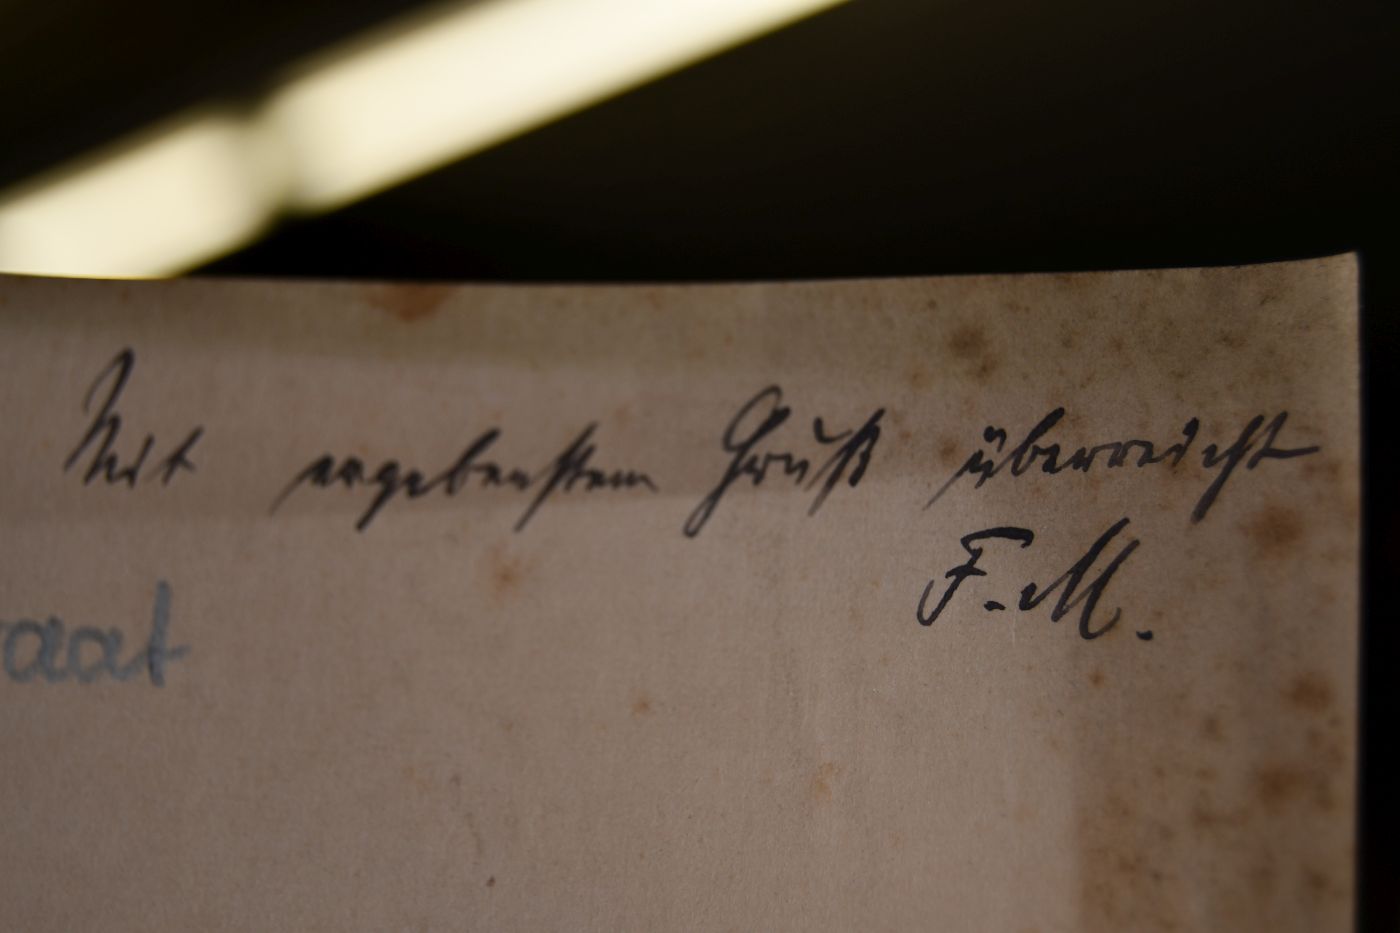 Mit ergebenstem Gruß überreicht
F. M.
raat